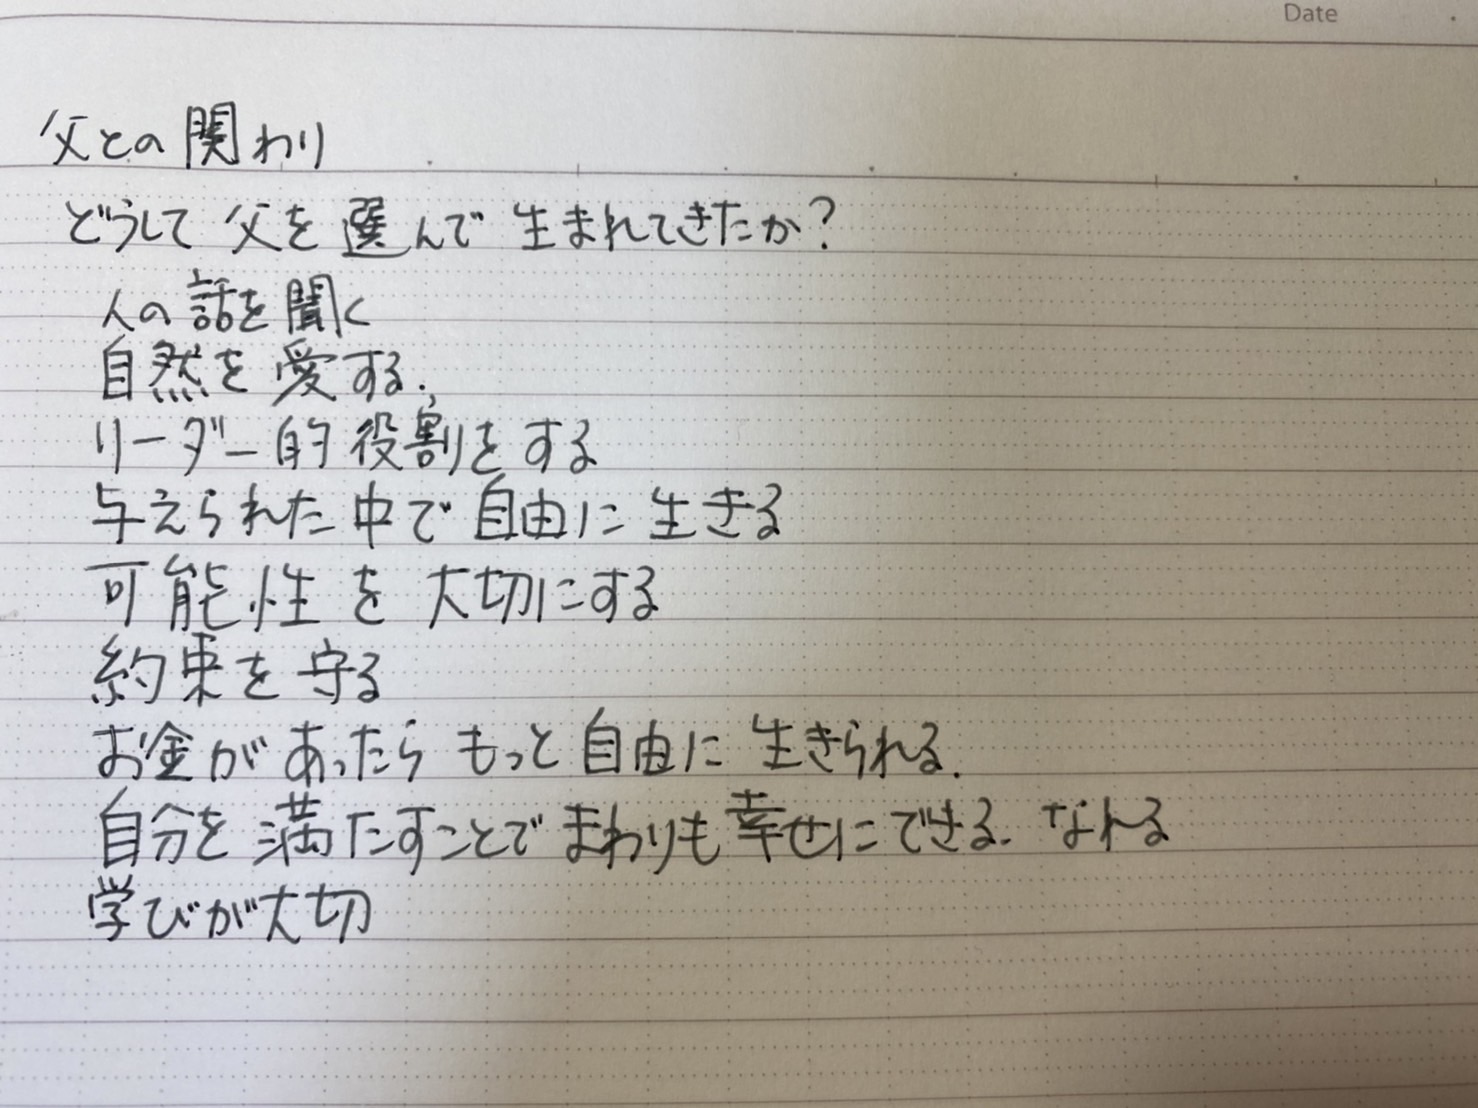 Date
父との関わり
どうして父を選んで生まれてきたか?
人の話を聞く
自然を愛する.
リーダー的役割をする
与えられた中で自由に生きる
可能性を大切にする
約束を守る
お金があったらもっと自由に生きられる.
自分を満たすことでまわりも幸せにできる. なれる
学びが大切